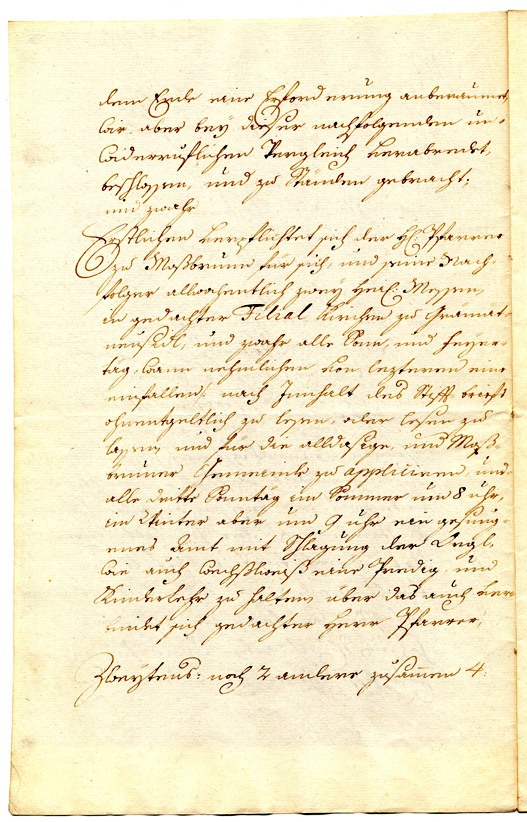 dem Ende eine Erforderung anberaumet,
wir aber bey dieser nachfolgenden un-
wiederruflichen Vergleich verabredet,
beschlossen, und zu Standen gebracht;
und zwahr
Erstlichen verpflichtet sich der H: Pfarrer
zu Moßbrunn für sich, und seine Nach-
folger allwochentlich zwey Heil: Messen
in gedachter Filial Kirchen zu Gramat-
neusidl, und zwahr alle Sonn, und Feyer-
täg, wann nehmlichen von lezteren eine
einfallen: nach Innhalt des Stifft briefs
ohnentgeltlich zu lesen, oder lesen zu
lassen, und für die alldasige, und Moß-
bruner Gemeinde zu appliciren, und
alle dritte Sonntäg im Sommer um 8 uhr,
im Winter aber um 9 uhr ein gesung-
enes Amt mit Schlagung der Orgl,
wie auch wechßlweiß eine Predig, und
Kinderlehr zu halten, über das auch ver-
bindet sich gedachter Herr Pfarrer,
Zweytens: noch 2 andere zusammen 4: